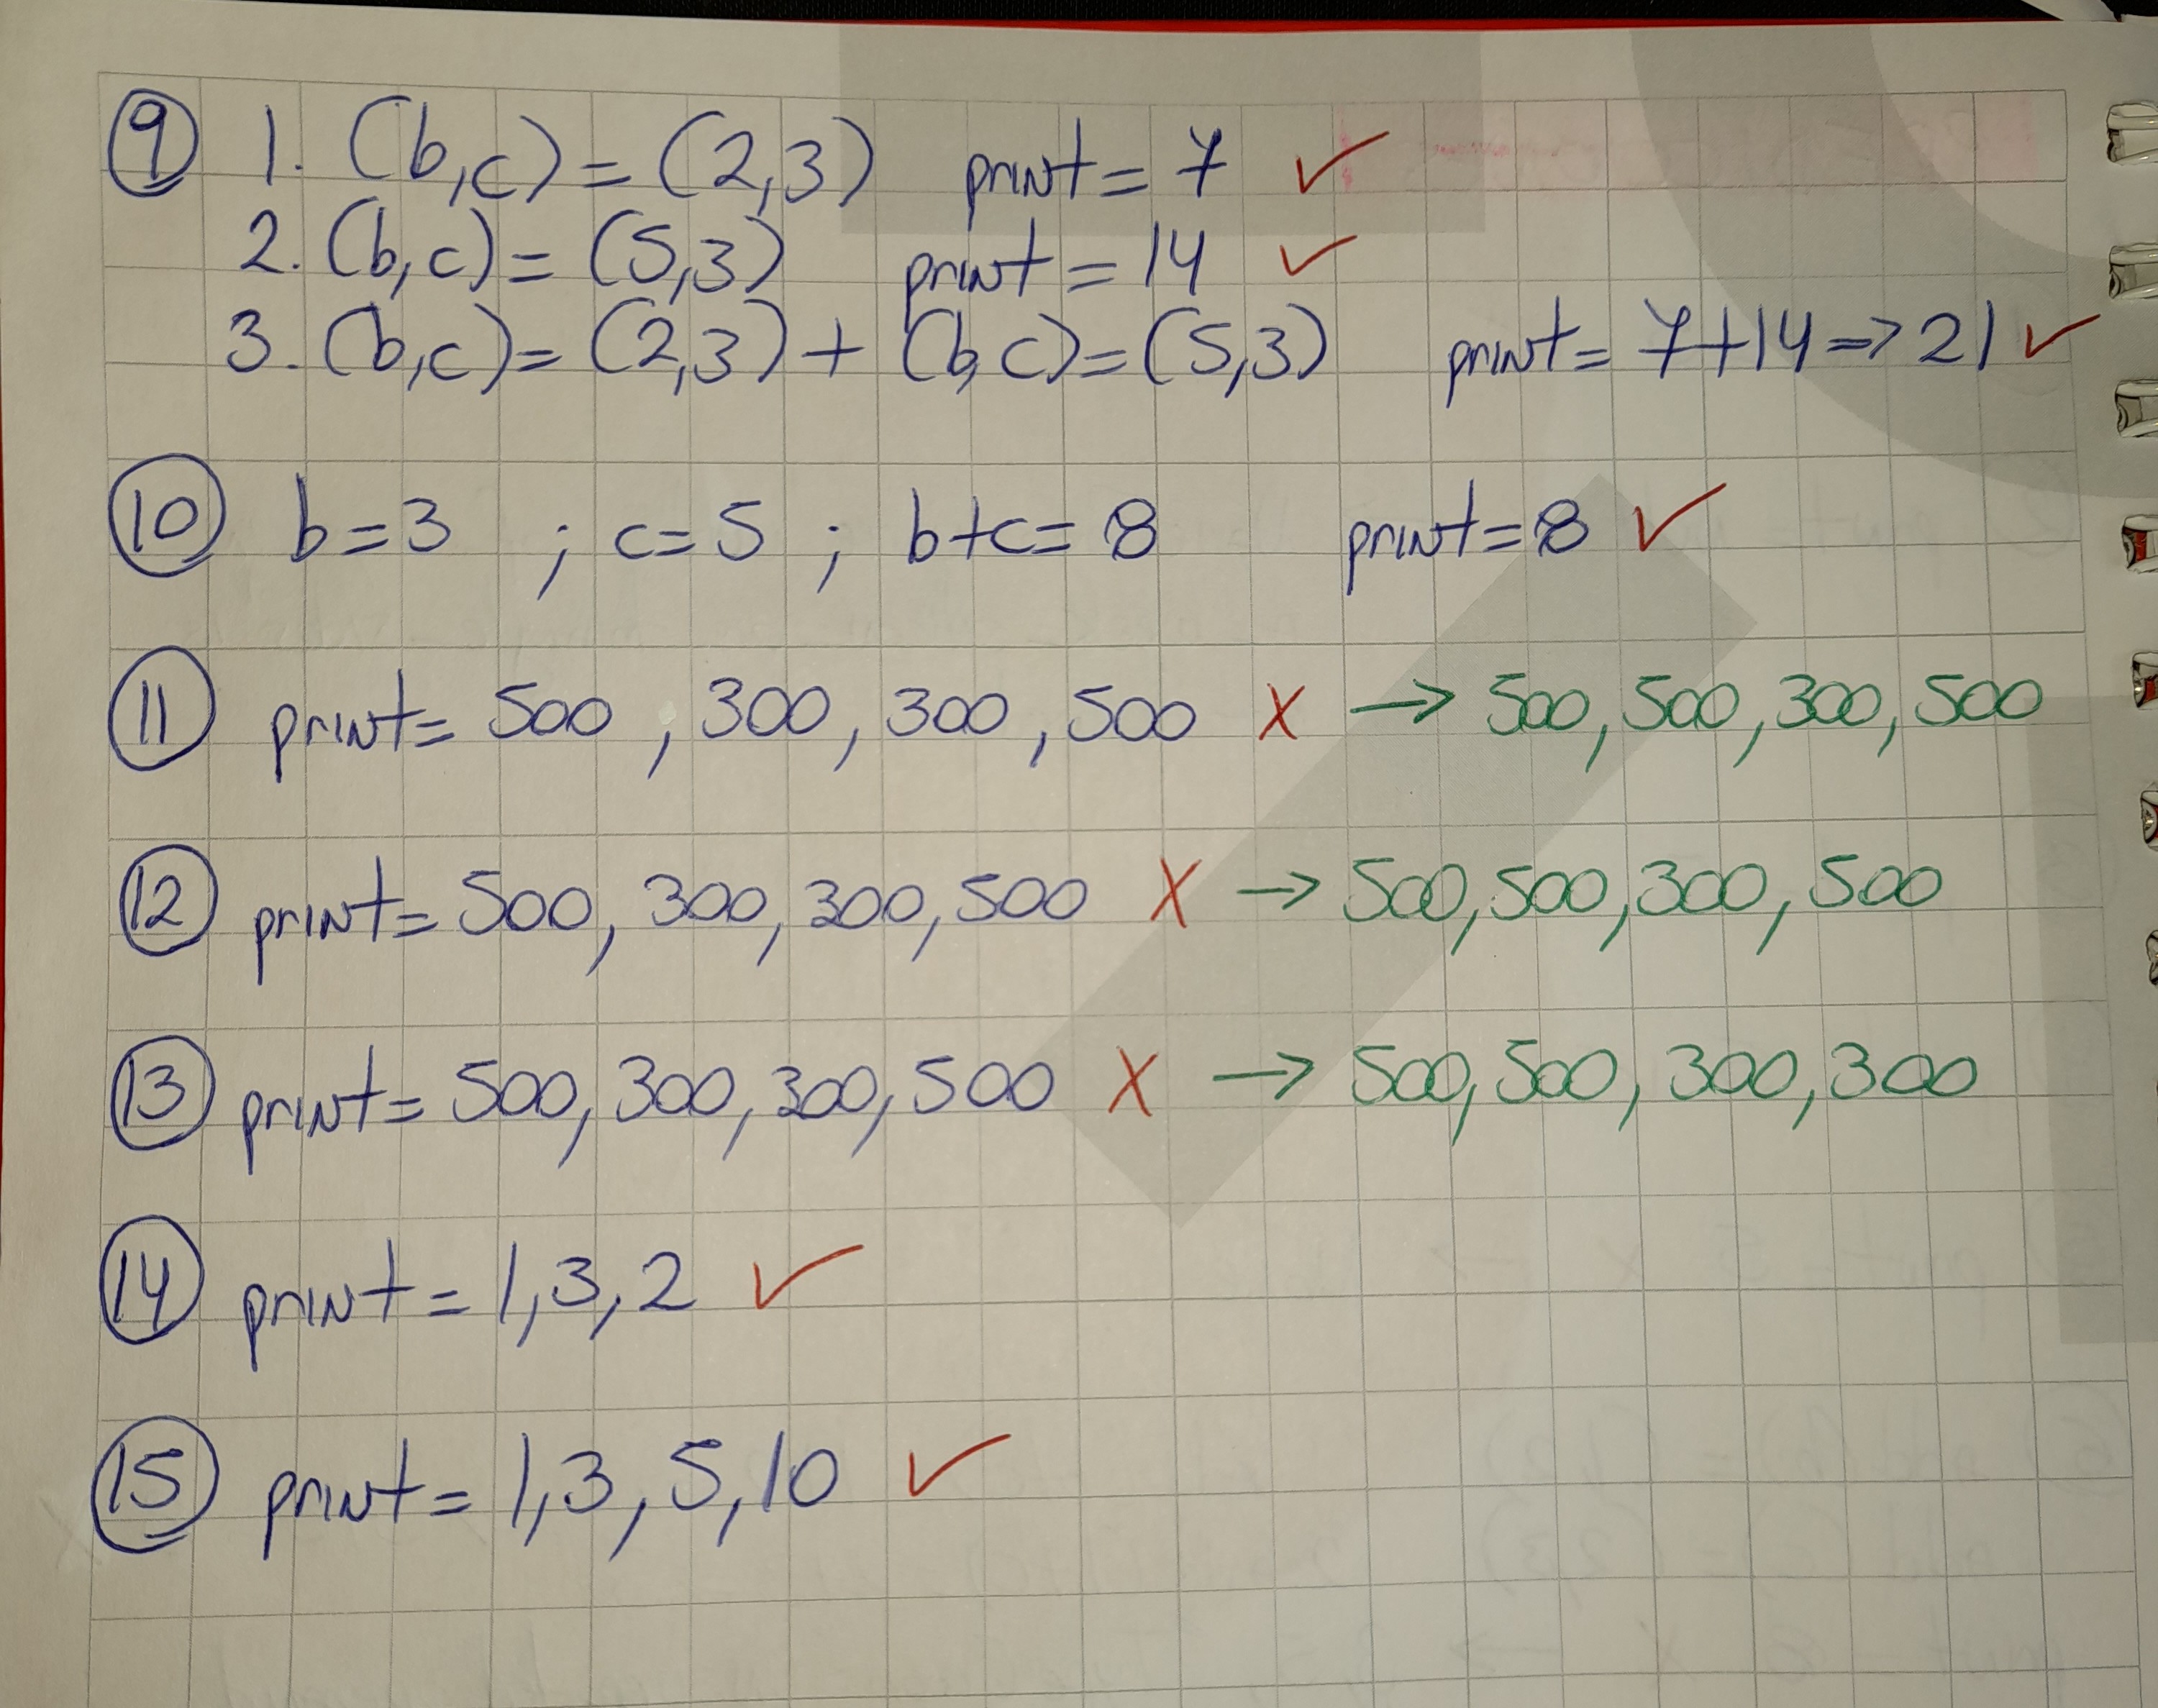 9 1. (b,c) = (2,3) print = 7 ✓
2. (b,c) = (5,3) print = 14 ✓
3. (b,c) = (2,3) + (b,c) = (5,3) print = 7+14 => 21 ✓
10 b=3 ; c=5 ; b+c= 8 print=8 ✓
11 print= 500, 300, 300, 500 X → 500, 500, 300, 500
12 print= 500, 300, 300, 500 X → 500, 500, 300, 500
13 print= 500, 300, 300, 500 X → 500, 500, 300, 300
14 print = 1,3,2 ✓
15 print = 1,3,5,10 ✓